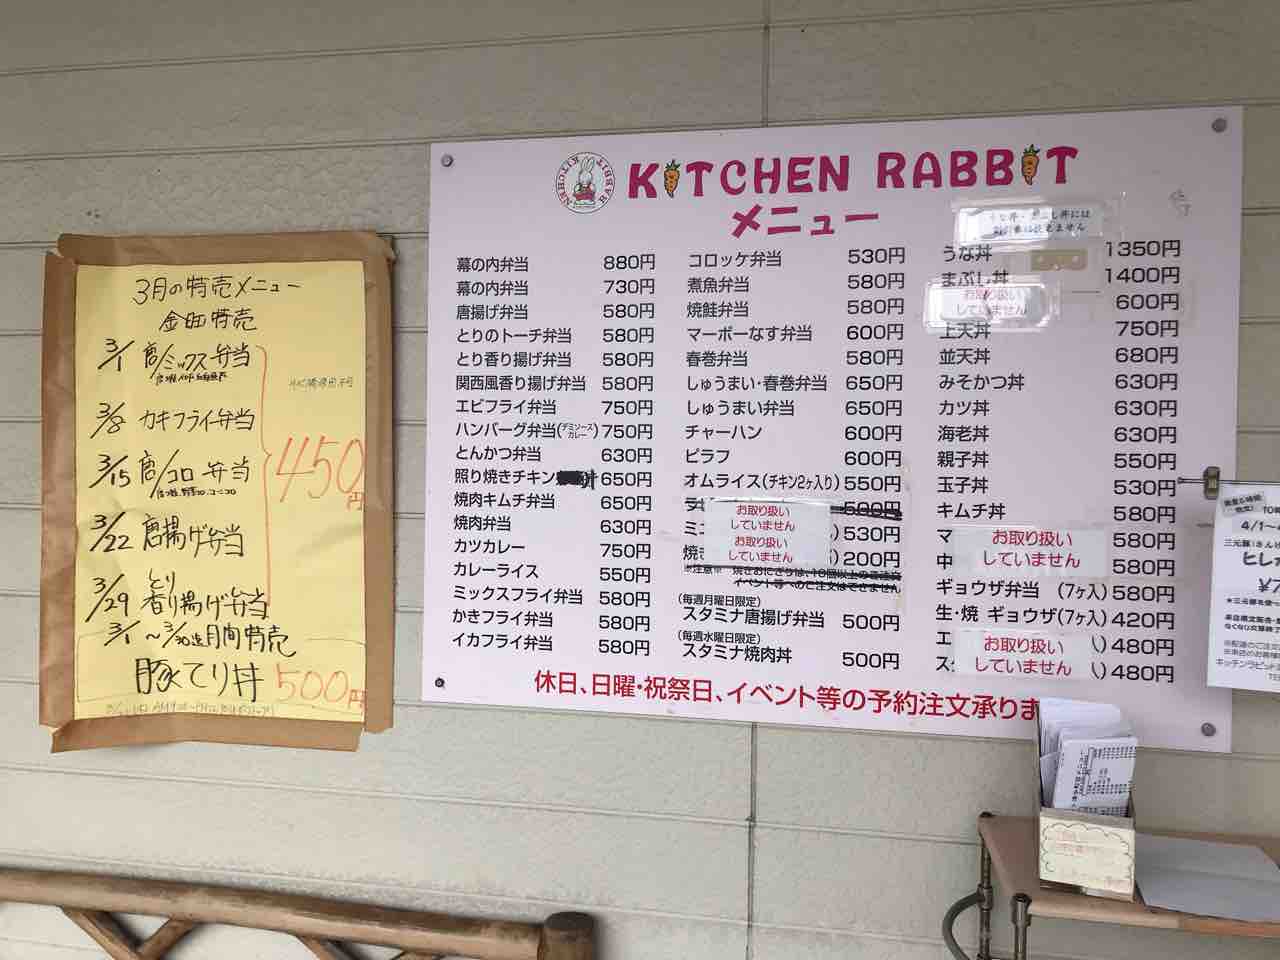 3月の特売メニュー
金曜特売
3/1 唐/ミックス弁当
3/8 カキフライ弁当
3/15 唐/コロ 弁当
3/22 唐揚げ弁当
3/29 とり香り揚げ弁当
450円
3/1~3/30迄月間特売
豚てり丼 500円
KITCHEN RABBIT
KITCHEN RABBIT
メニュー
幕の内弁当 880円
幕の内弁当 730円
唐揚げ弁当 580円
とりのトーチ弁当 580円
とり香り揚げ弁当 580円
関西風香り揚げ弁当 580円
エビフライ弁当 750円
ハンバーグ弁当(デミソースカレー) 750円
とんかつ弁当 630円
照り焼きチキン 弁 650円
焼肉キムチ弁当 650円
焼肉弁当 630円
カツカレー 750円
カレーライス 550円
ミックスフライ弁当 580円
かきフライ弁当 580円
イカフライ弁当 580円
コロッケ弁当 530円
煮魚弁当 580円
焼鮭弁当 580円
マーボーなす弁当 600円
春巻弁当 580円
しゅうまい・春巻弁当 650円
しゅうまい弁当 650円
チャーハン 600円
ピラフ 600円
オムライス(チキン2ヶ入り) 550円
500円
お取り扱い
していません
ミニ ) 530円
お取り扱い
していません
焼き ) 200円
※注意※ 焼きおにぎりは、10個以上の
イベント等へのご注文はできません
(毎週月曜日限定)
スタミナ唐揚げ弁当 500円
(毎週水曜日限定)
スタミナ焼肉丼 500円
うな丼・まぶし丼には
割引券は使えません
うな丼 1350円
まぶし丼 1400円
お取り扱い
していません
600円
上天丼 750円
並天丼 680円
みそかつ丼 630円
カツ丼 630円
海老丼 630円
親子丼 550円
玉子丼 530円
キムチ丼 580円
マ 580円
お取り扱い
していません
中 580円
ギョウザ弁当 (7ヶ入) 580円
生・焼 ギョウザ(7ヶ入) 420円
エ ) 480円
お取り扱い
していません
ス ) 480円
休日、日曜・祝祭日、イベント等の予約注文承りま
4/1~
ヒレ